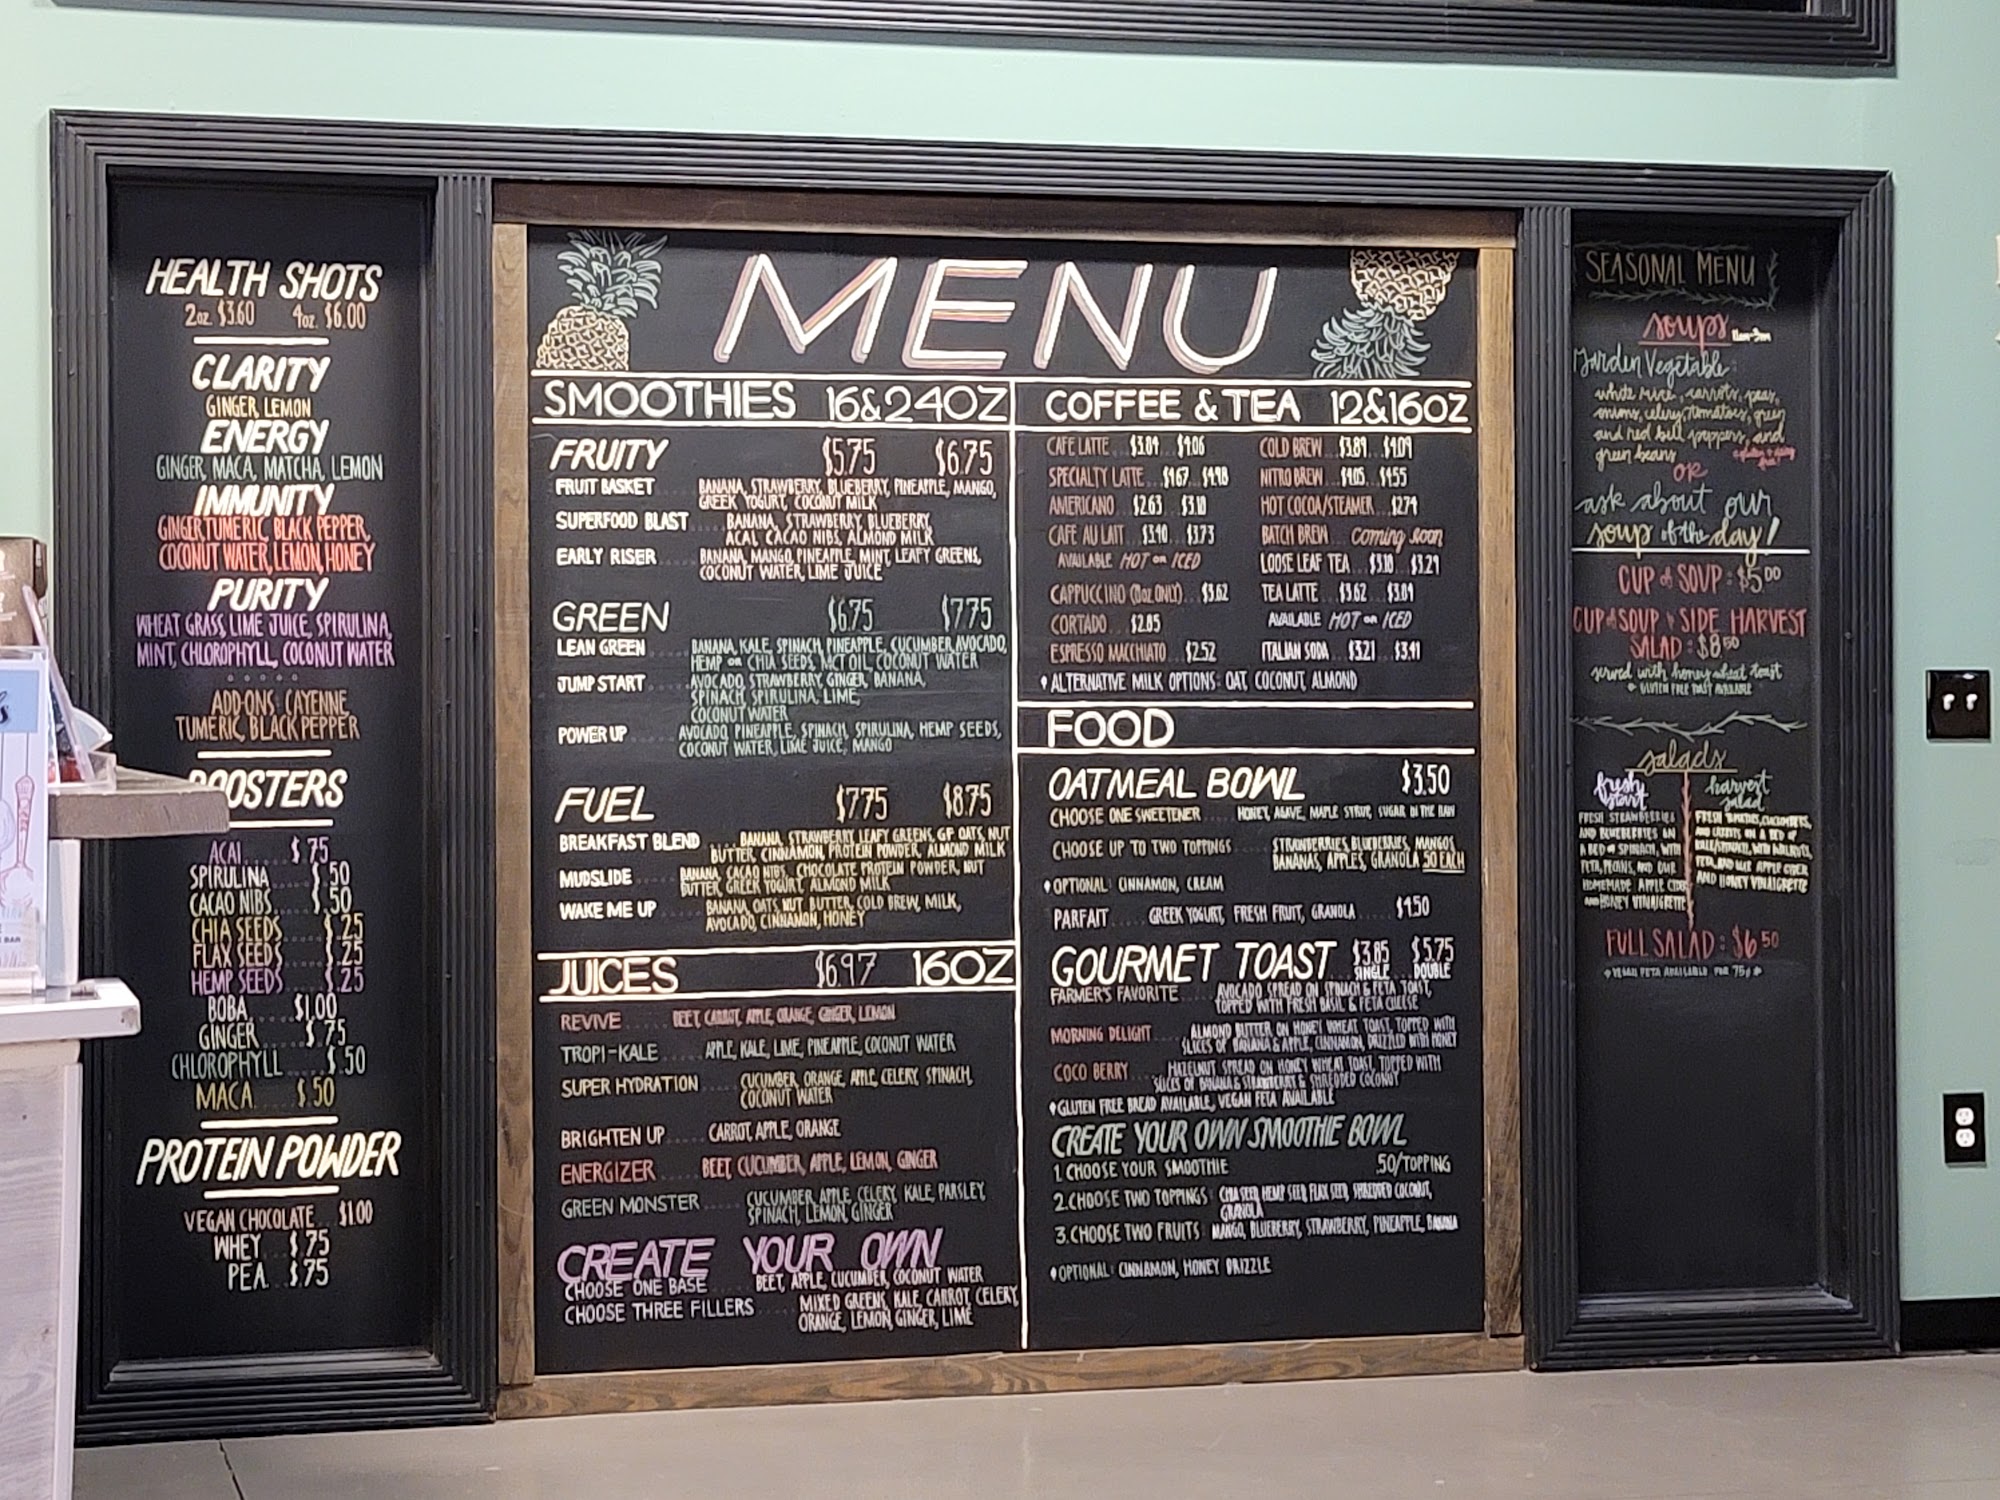 HEALTH SHOTS
2oz. $3.60 4oz. $6.00
CLARITY
GINGER, LEMON
ENERGY
GINGER, MACA, MATCHA, LEMON
IMMUNITY
GINGER, TUMERIC, BLACK PEPPER,
COCONUT WATER, LEMON, HONEY
PURITY
WHEAT GRASS, LIME JUICE, SPIRULINA,
MINT, CHLOROPHYLL, COCONUT WATER
ADD-ONS: CAYENNE,
TUMERIC, BLACK PEPPER
OOSTERS
ACAI.....$.75
SPIRULINA.....$.50
CACAO NIBS.....$.50
CHIA SEEDS.....$.25
FLAX SEEDS.....$.25
HEMP SEEDS.....$.25
BOBA.....$1.00
GINGER.....$.75
CHLOROPHYLL.....$.50
MACA.....$.50
PROTEIN POWDER
VEGAN CHOCOLATE...$1.00
WHEY...$.75
PEA...$.75
MENU
SMOOTHIES 16&24OZ
FRUITY $5.75 $6.75
FRUIT BASKET ..... BANANA, STRAWBERRY, BLUEBERRY, PINEAPPLE, MANGO,
GREEK YOGURT, COCONUT MILK
SUPERFOOD BLAST ..... BANANA, STRAWBERRY, BLUEBERRY,
ACAI, CACAO NIBS, ALMOND MILK
EARLY RISER ..... BANANA, MANGO, PINEAPPLE, MINT, LEAFY GREENS,
COCONUT WATER, LIME JUICE
GREEN $6.75 $7.75
LEAN GREEN ..... BANANA, KALE, SPINACH, PINEAPPLE, CUCUMBER, AVOCADO,
HEMP OR CHIA SEEDS, MCT OIL, COCONUT WATER
JUMP START ..... AVOCADO, STRAWBERRY, GINGER, BANANA,
SPINACH, SPIRULINA, LIME,
COCONUT WATER
POWER UP ..... AVOCADO, PINEAPPLE, SPINACH, SPIRULINA, HEMP SEEDS,
COCONUT WATER, LIME JUICE, MANGO
FUEL $7.75 $8.75
BREAKFAST BLEND ..... BANANA, STRAWBERRY, LEAFY GREENS, GF OATS, NUT
BUTTER, CINNAMON, PROTEIN POWDER, ALMOND MILK
MUDSLIDE ..... BANANA, CACAO NIBS, CHOCOLATE PROTEIN POWDER, NUT
BUTTER, GREEK YOGURT, ALMOND MILK
WAKE ME UP ..... BANANA, OATS, NUT BUTTER, COLD BREW, MILK,
AVOCADO, CINNAMON, HONEY
JUICES $6.97 16OZ
REVIVE ..... BEET, CARROT, APPLE, ORANGE, GINGER, LEMON
TROPI-KALE ..... APPLE, KALE, LIME, PINEAPPLE, COCONUT WATER
SUPER HYDRATION ..... CUCUMBER, ORANGE, APPLE, CELERY, SPINACH,
COCONUT WATER
BRIGHTEN UP ..... CARROT, APPLE, ORANGE
ENERGIZER ..... BEET, CUCUMBER, APPLE, LEMON, GINGER
GREEN MONSTER ..... CUCUMBER, APPLE, CELERY, KALE, PARSLEY,
SPINACH, LEMON, GINGER
CREATE YOUR OWN
CHOOSE ONE BASE ..... BEET, APPLE, CUCUMBER, COCONUT WATER
CHOOSE THREE FILLERS ..... MIXED GREENS, KALE, CARROT, CELERY,
ORANGE, LEMON, GINGER, LIME
COFFEE & TEA 12&16OZ
CAFE LATTE ... $3.84 ... $4.06
SPECIALTY LATTE ... $4.67 ... $4.98
AMERICANO ... $2.63 ... $3.10
CAFE AU LAIT ... $3.40 ... $3.73
AVAILABLE HOT OR ICED
CAPPUCCINO (8oz ONLY) ... $3.62
CORTADO ... $2.85
ESPRESSO MACCHIATO ... $2.52
COLD BREW ... $3.89 ... $4.09
NITRO BREW ... $4.05 ... $4.55
HOT COCOA/STEAMER ... $2.74
BATCH BREW ... coming soon
LOOSE LEAF TEA ... $3.10 ... $3.29
TEA LATTE ... $3.62 ... $3.84
AVAILABLE HOT OR ICED
ITALIAN SODA ... $3.21 ... $3.41
ALTERNATIVE MILK OPTIONS: OAT, COCONUT, ALMOND
FOOD
OATMEAL BOWL $3.50
CHOOSE ONE SWEETENER HONEY, AGAVE, MAPLE SYRUP, SUGAR IN THE RAW
CHOOSE UP TO TWO TOPPINGS STRAWBERRIES, BLUEBERRIES, MANGOS
BANANAS, APPLES, GRANOLA .50 EACH
OPTIONAL: CINNAMON, CREAM
PARFAIT ..... GREEK YOGURT, FRESH FRUIT, GRANOLA ..... $4.50
GOURMET TOAST $3.85 SINGLE $5.75 DOUBLE
FARMER'S FAVORITE ..... AVOCADO SPREAD ON SPINACH & FETA TOAST,
TOPPED WITH FRESH BASIL & FETA CHEESE
MORNING DELIGHT ..... ALMOND BUTTER ON HONEY WHEAT TOAST, TOPPED WITH
SLICES OF BANANA & APPLE, CINNAMON, DRIZZLED WITH HONEY
COCO BERRY ..... HAZELNUT SPREAD ON HONEY WHEAT TOAST, TOPPED WITH
SLICES OF BANANA & STRAWBERRY & SHREDDED COCONUT
GLUTEN FREE BREAD AVAILABLE, VEGAN FETA AVAILABLE
CREATE YOUR OWN SMOOTHIE BOWL
1. CHOOSE YOUR SMOOTHIE .50/TOPPING
2. CHOOSE TWO TOPPINGS: CHIA SEED, HEMP SEED, FLAX SEED, SHREDDED COCONUT,
GRANOLA
3. CHOOSE TWO FRUITS: MANGO, BLUEBERRY, STRAWBERRY, PINEAPPLE, BANANA
OPTIONAL: CINNAMON, HONEY DRIZZLE
SEASONAL MENU
soups 11am-3pm
Garden Vegetable:
white rice, carrots, peas,
onions, celery, tomatoes, green
and red bell peppers, and
green beans
gluten + dairy free!
OR
ask about our
soup of the day!
CUP of SOUP: $5.00
CUP of SOUP & SIDE HARVEST
SALAD: $8.50
served with honey wheat toast
GLUTEN FREE TOAST AVAILABLE
salads
fresh start
FRESH STRAWBERRIES
AND BLUEBERRIES ON
A BED OF SPINACH, WITH
FETA, PECANS, AND OUR
HOMEMADE APPLE CIDER
AND HONEY VINAIGRETTE
harvest salad
FRESH TOMATOES, CUCUMBERS,
AND CARROTS ON A BED OF
KALE/SPINACH, WITH WALNUTS,
FETA, AND OUR APPLE CIDER
AND HONEY VINAIGRETTE
FULL SALAD: $6.50
VEGAN FETA AVAILABLE FOR 75¢